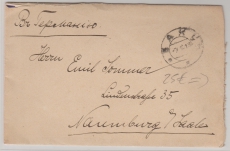 Въ Германію
БАКУ
Herrn Emil Sommer
Lindenstraße 35
25€
Naremburg / Saale